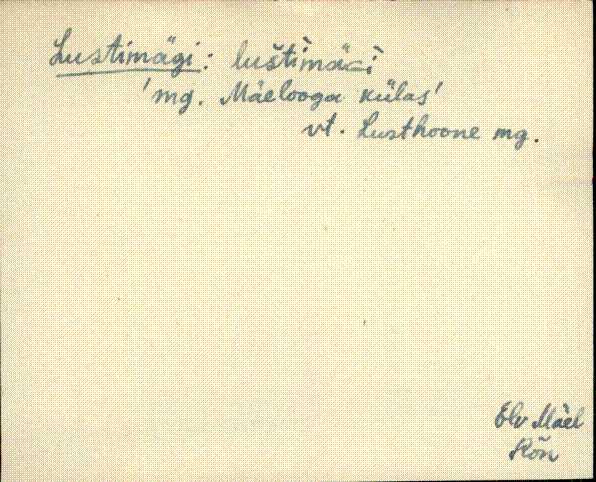 Lustimägi: luštimäGi
'mg. Mäelooga külas'
vt. Lusthoone mg.
Elv Mäel
Rõn